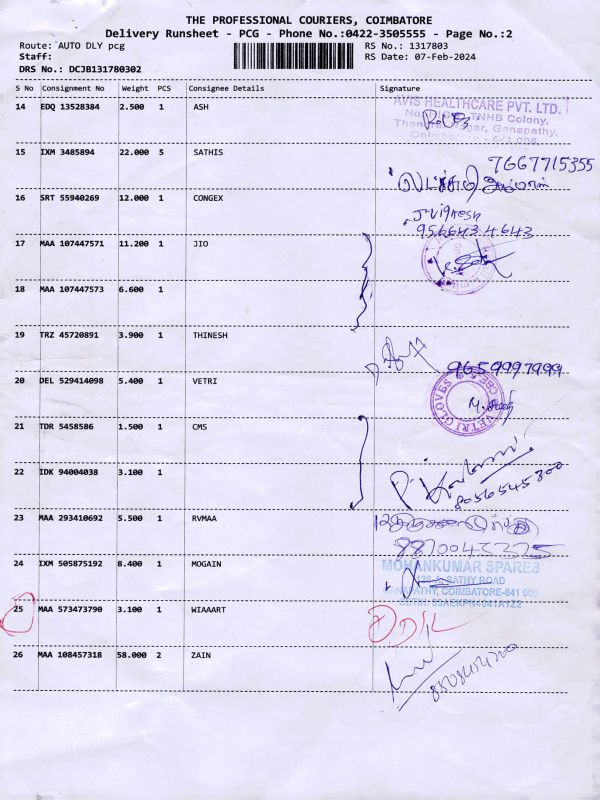 THE PROFESSIONAL COURIERS, COIMBATORE
Delivery Runsheet - PCG - Phone No.:0422-3505555 - Page No.:2
Route: AUTO DLY pcg RS No.: 1317803
Staff: RS Date: 07-Feb-2024
DRS No.: DCJB131780302
S No Consignment No Weight PCS Consignee Details Signature
14 EDQ 13528384 2.500 1 ASH
AVIS HEALTHCARE PVT. LTD.
TNHB Colony,
Nagar, Ganapathy,
Coimbatore - 641 006
15 IXM 3485894 22.000 5 SATHIS
7667715355
16 SRT 55940269 12.000 1 CONGEX
J.Vignesh
9566434643
17 MAA 107447571 11.200 1 JIO
18 MAA 107447573 6.600 1
19 TRZ 45720891 3.900 1 THINESH
9659997999
20 DEL 529414098 5.400 1 VETRI
VETRI GLOVES CBE
21 TDR 5458586 1.500 1 CMS
22 IDK 94004038 3.100 1
8056545300
23 MAA 293410692 5.500 1 RVMAA
24 IXM 505875192 8.400 1 MOGAIN
MOHANKUMAR SPARES
SATHY ROAD
COIMBATORE-641 006
25 MAA 573473790 3.100 1 WIAAART
26 MAA 108457318 58.000 2 ZAIN